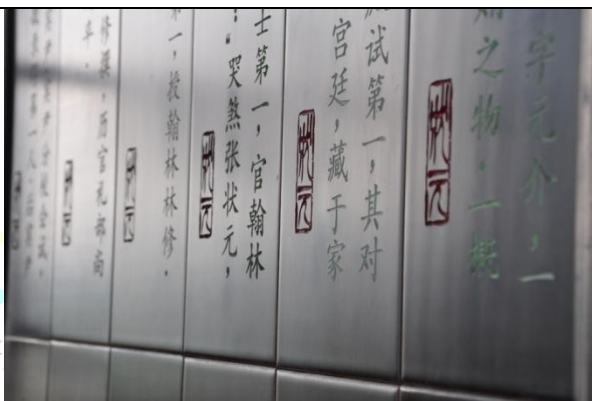 字元介，一
之物．一概
状元
试第一，其对
宫廷，藏于家
状元
士第一，官翰林
：“哭煞张状元，
状元
一，授翰林林修．
状元
修撰，历官礼部尚
状元